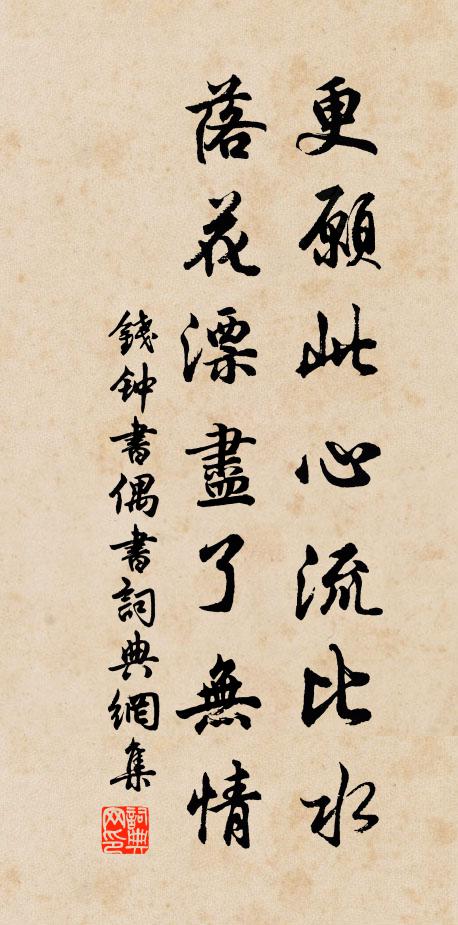 更願此心流比水
落花漂盡了無情
錢鈡書偶書詞典網集
詞典
网印